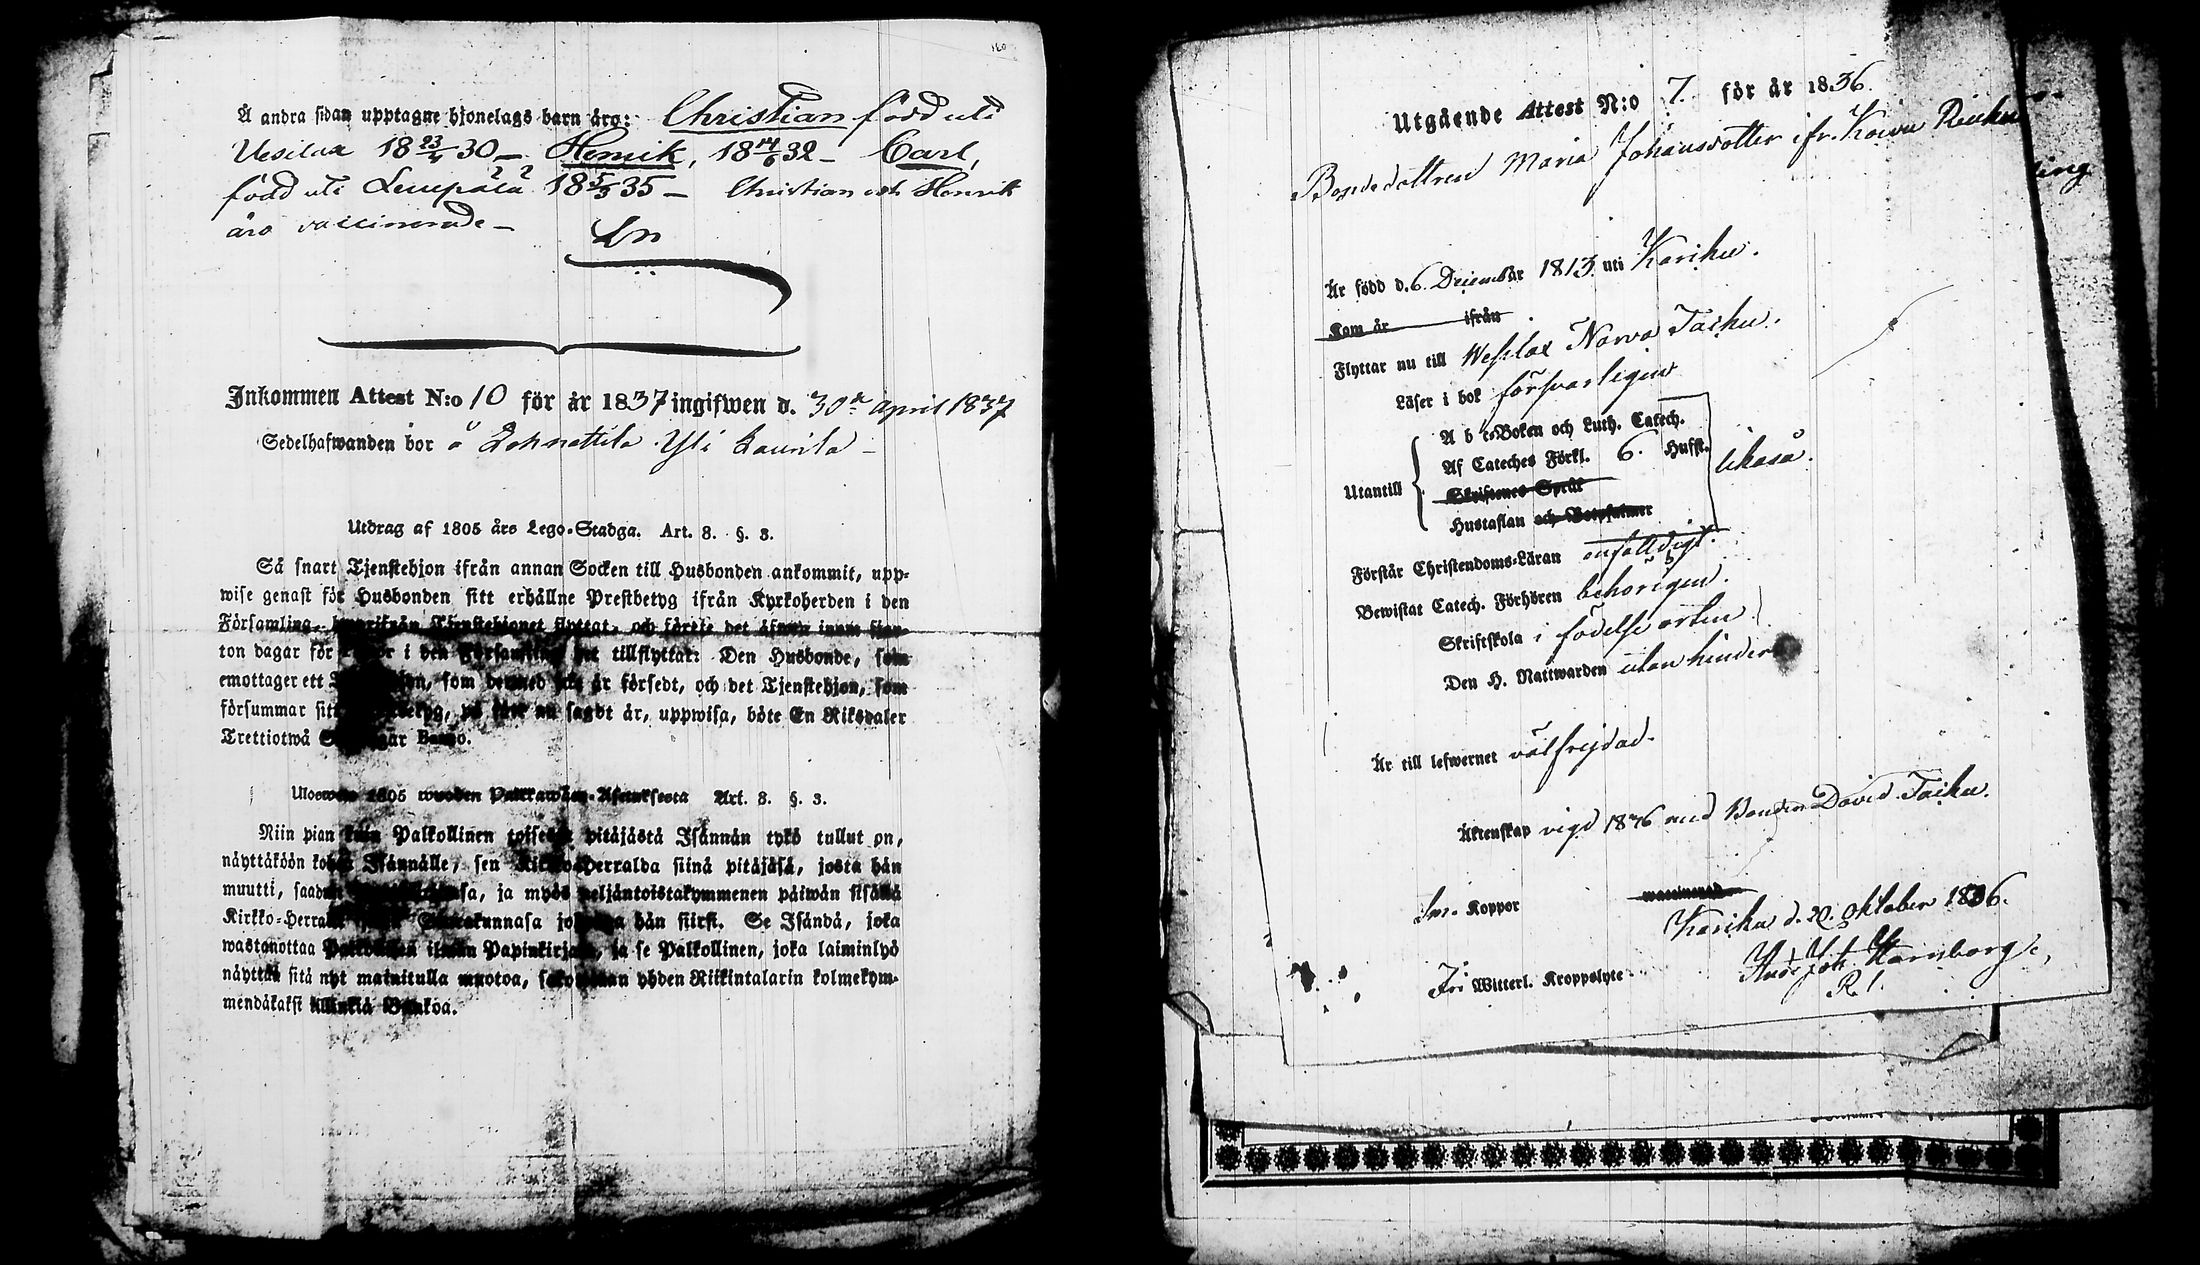 160
Å andra sidan upptagne hjonelags barn äro: Christian född uti
Vesilax 18 23/4 30 – Henrik, 18 14/6 32 – Carl,
född uti Lempälä 18 5/3 35 – Christian och Henrik
äro vaccinerade –
Inkommen Attest N:o 10 för år 1837 ingifwen d. 30de April 1837
Sedelhafwanden bor å Lahnattila Yli Laurila –
Utdrag af 1805 års Lego-Stadga. Art. 8. §. 3.
Så snart Tjenstehjon ifrån annan Socken till Husbonden ankommit, upp-
wise genast för Husbonden sitt erhållne Prestbetyg ifrån Kyrkoherden i den
Församling, hwarifrån Tjenstehjonet flyttat, och förete det äfwen inom fjor-
ton dagar för i den Församling det tillflyttat: Den Husbonde, som
emottager ett som dermed icke är försedt, och det Tjenstehjon, som
försummar sitt på sätt nu sagdt är, uppwisa, böte En Riksdaler
Trettiotwå Skillingar Banko.
Uloswete 1805 wuoden Palkkawäen-Asetuksesta Art. 8. §. 3.
Niin pian kuin Palkollinen toisesta pitäjästä Isännän tykö tullut on,
näyttäköön kohta Isännälle, sen Kirkko-Herralda siinä pitäjäsä, josta hän
muutti, saadun ja myös neljäntoistakymmenen päiwän sisällä
Kirkko-Herralle Seurakunnasa johonga hän siirsi. Se Isändä, joka
wastanottaa Palkollisen ilman Papinkirjata, ja se Palkollinen, joka laiminlyö
näyttää sitä nyt mainitulla muotoa, sakoitetaan yhden Riikintalarin kolmekym-
mendäkaksi killinkiä Bankoa.
Utgående Attest N:o 7. för år 1836.
Bondedottren Maria Johansdotter ifr. Koivu
Är född d. 6 December 1813 uti Kariku.
Kom år ifrån
Flyttar nu till Wesilax Narva Taiku.
Läser i bok försvarligen
A b c-Boken och Luth. Catech.
Af Cateches Förkl. 6. Hufst.
Utantill likaså.
Skriftenes Språk
Hustaflan och Botpsalmer
Förstår Christendoms-Läran enfaldigt.
Bewistat Catech. Förhören behörigen.
Skriftskola i födelse orten
Den H. Nattwarden utan hinder
Är till lefwernet välfrejdad.
Äktenskap vigd 1836 med Bonden David Taiku.
Koppor waccinerad
Kariku d. 20 Oktober 1836.
Fri Witterl. Kroppslyte